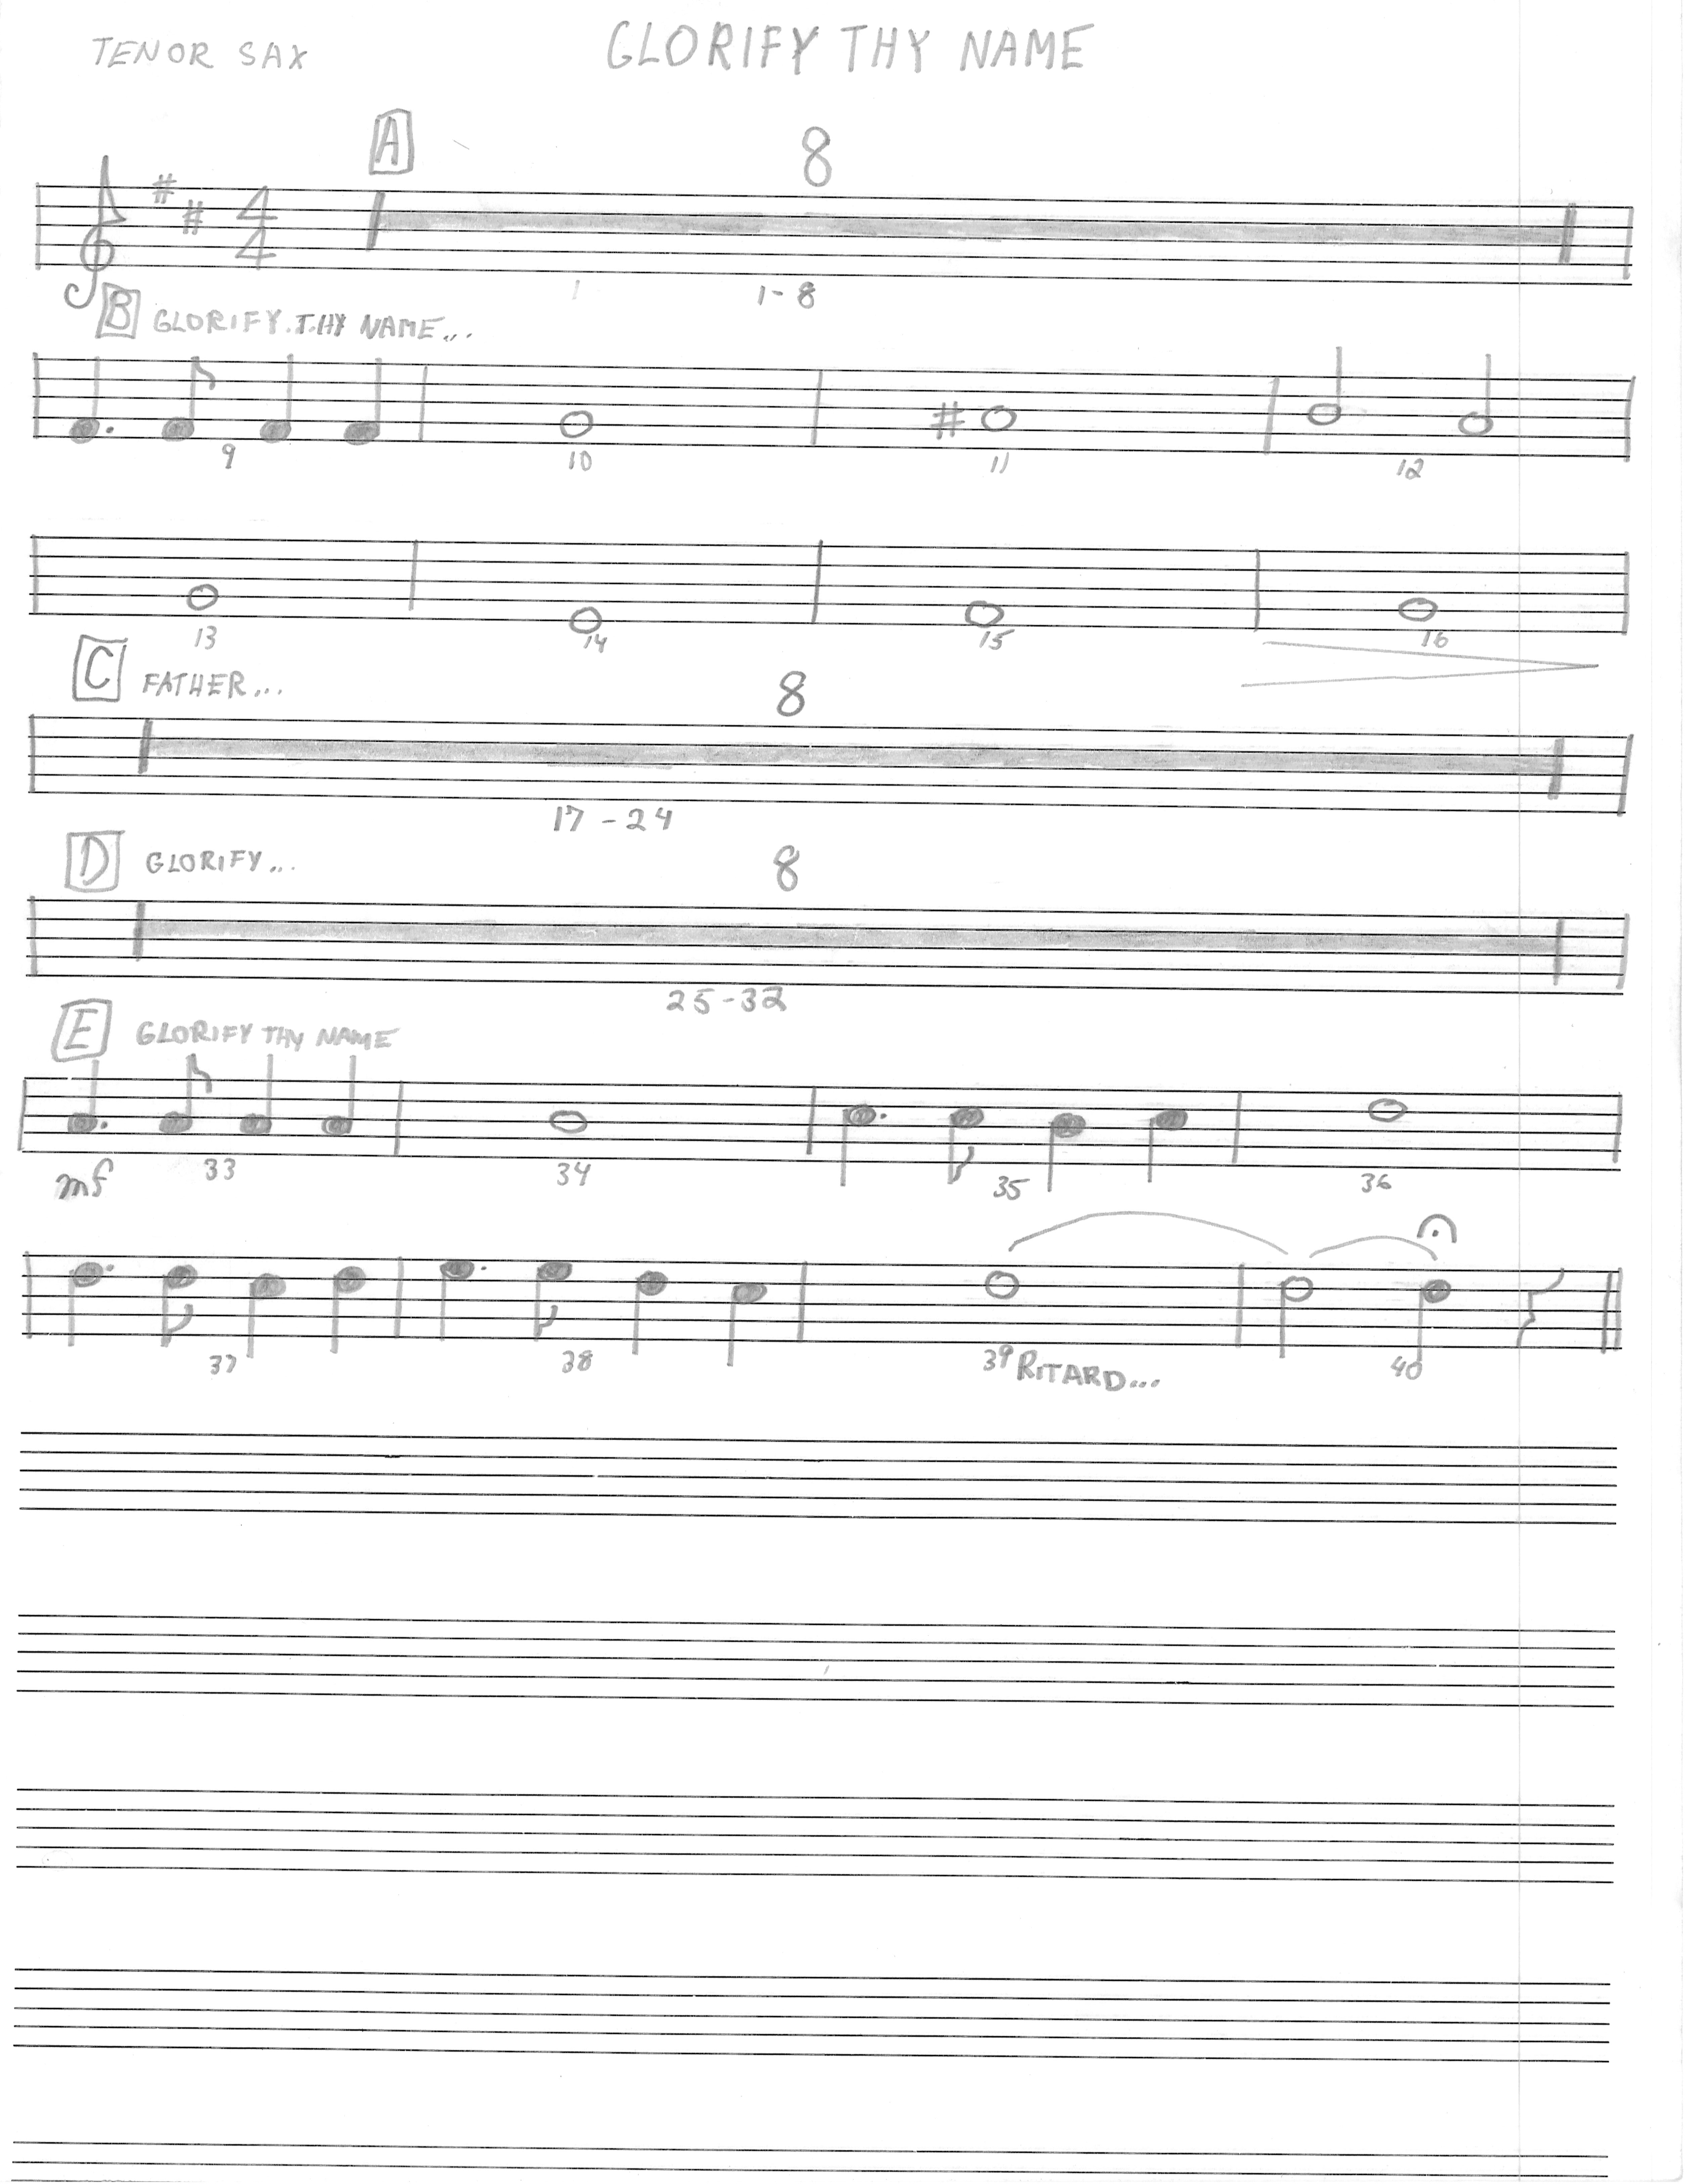 TENOR SAX
GLORIFY THY NAME
A
8
4
4
1-8
B GLORIFY THY NAME...
9 10 11 12
13 14 15 16
C FATHER...
8
17-24
D GLORIFY...
8
25-32
E GLORIFY THY NAME
mf 33 34 35 36
37 38 39 RITARD... 40